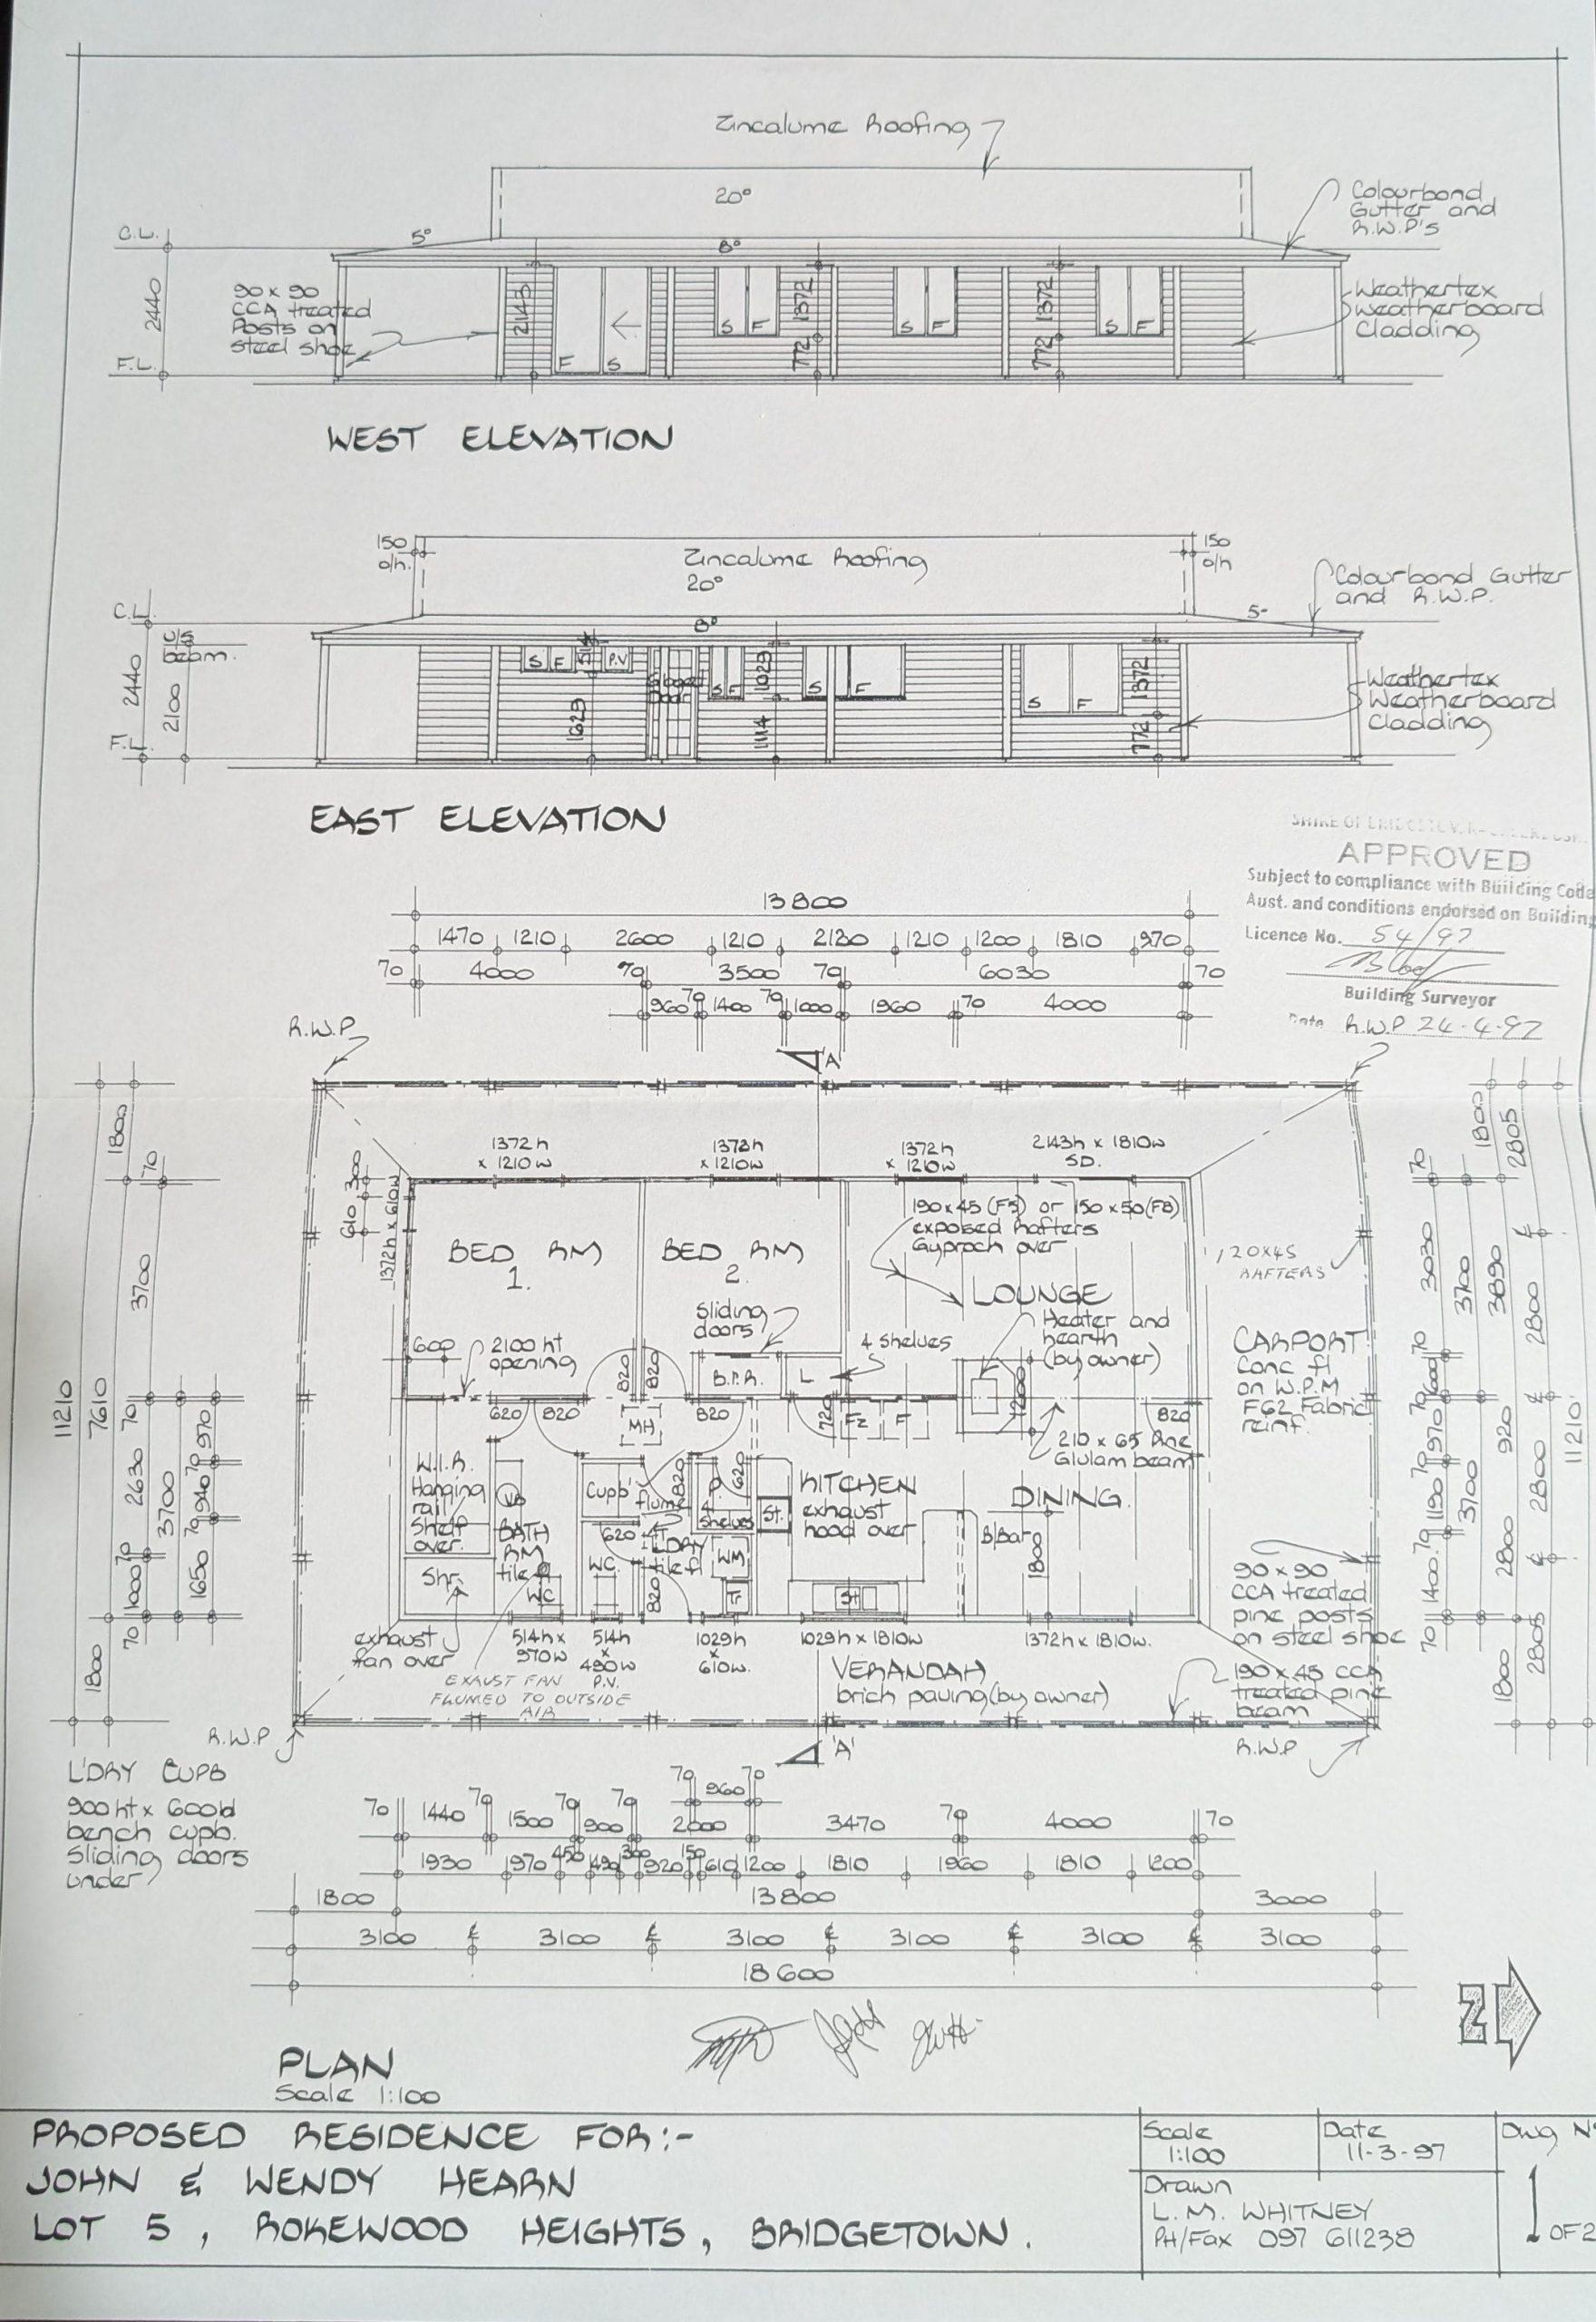 Zincalume Roofing
20°
Colourbond
Gutter and
R.W.P's
C.L.
5°
8°
2440
90 x 90
CCA treated
Posts on
steel shoe
2143
1372
1372
S F
S F
S F
Weathertex
Weatherboard
Cladding
772
772
F.L.
F S
WEST ELEVATION
150
o/h.
Zincalume Roofing
20°
150
o/h
Colourbond Gutter
and R.W.P.
C.L.
5°
8°
U/S
beam.
2440
2100
S F
514
P.V
S F
1029
S F
1372
S F
Weathertex
Weatherboard
Cladding
1629
1114
772
F.L
EAST ELEVATION
APPROVED
Subject to compliance with Building Code
Aust. and conditions endorsed on Building
Licence No. 54/97
Building Surveyor
Date 24-4-97
R.W.P
13800
1470 1210 2600 1210 2130 1210 1200 1810 970
70 4000 70 3500 70 6030 70
960 70 1400 70 1000 1960 70 4000
R.W.P
'A'
1372h
x 1210w
1372h
x 1210w
1372h
x 1210w
2143h x 1810w
SD.
1800
70
300
610
1372h x 610w
3700
11210
7610
70
2630
3700
970
70
940
70
1650
70
1000
70
1800
190x45 (F5) or 150x50(F8)
exposed Rafters
Gyprock over
BED RM
1.
BED RM
2.
LOUNGE
120x45
RAFTERS
Sliding
doors
4 shelves
Heater and
hearth
(by owner)
600
2100 ht
opening
820
820
B.I.R.
L
1200
CARPORT
Conc fl
on W.P.M
F62 Fabric
reinf.
620 820
MH
820
720
Fz
F
820
210 x 65 Pine
Glulam beam
W.I.R.
Hanging
rail
Shelf
over.
VB
BATH
RM
tile fl
Cupb'
flume
820
P.
620
4
shelves
St.
KITCHEN
exhaust
hood over
DINING.
620
L'DRY
tile fl
WM
B/Bar
1800
WC
WC
820
Shr.
90 x 90
CCA treated
pine posts
on steel shoe
exhaust
fan over
514h x
970w
514h
x
490w
P.V.
1029h
x
610w.
1029h x 1810w
1372h x 1810w.
EXAUST FAN
FLUMED TO OUTSIDE
AIR
VERANDAH
brick paving(by owner)
190 x 45 CCA
treated pine
beam
R.W.P
'A'
R.W.P
1800
2805
70
3030
3700
3890
2800
70
600
70
970
920
70
1190
3700
2800
70
1400
2800
70
1800
2805
11210
L'DRY CUPB
900 ht x 600wd
bench cupb.
Sliding doors
under
70 960 70
70 1440 70 1500 70 900 70 2000 3470 70 4000 70
1930 970 450 490 300 920 150 610 1200 1810 1960 1810 1200
1800 13800 3000
3100 3100 3100 3100 3100 3100
18600
N
PLAN
Scale 1:100
PROPOSED RESIDENCE FOR:-
JOHN & WENDY HEARN
LOT 5, ROKEWOOD HEIGHTS, BRIDGETOWN.
Scale
1:100
Date
11-3-97
Dwg Nº
Drawn
L.M. WHITNEY
PH/Fax 097 611238
1 OF 2